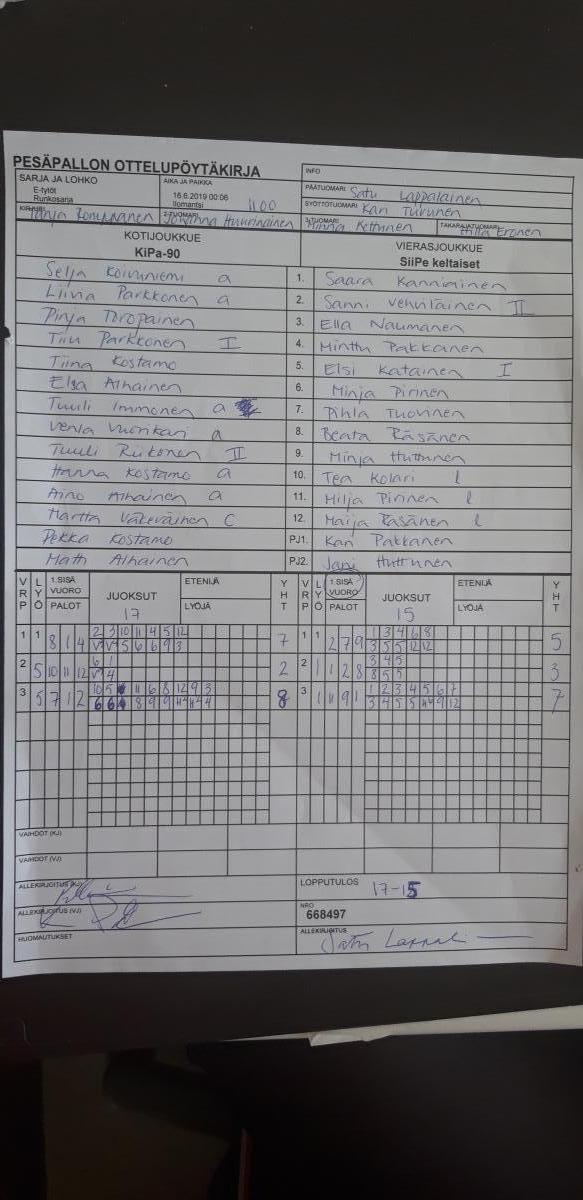 PESÄPALLON OTTELUPÖYTÄKIRJA
INFO
SARJA JA LOHKO
E-tytöt
Runkosarja
AIKA JA PAIKKA
16.6.2019 00:06 11.00
Ilomantsi
PÄÄTUOMARI Satu Lappalainen
SYÖTTÖTUOMARI Kari Turunen
KIRJURI Tanja Romppanen
2-TUOMARI Johanna Huurinainen
3-TUOMARI Minna Kettunen
TAKARAJATUOMARI Milla Eronen
KOTIJOUKKUE
KiPa-90
VIERASJOUKKUE
SiiPe keltaiset
Selja Koivuniemi a 1. Saara Kanniainen
Liivia Parkkonen a 2. Sanni Vehviläinen II
Pinja Toropainen 3. Ella Naumanen
Tiiu Parkkonen I 4. Minttu Pakkanen
Tiina Kostamo 5. Elsi Katainen I
Elsa Alhainen 6. Minja Pirinen
Tuuli Immonen a 7. Pihla Tuovinen
Venla Vuorikari a 8. Beata Räsänen
Tuuli Riikonen II 9. Minja Huttunen
Hanna Kostamo a 10. Tea Kolari l
Aino Alhainen a 11. Milja Pirinen l
Martta Väkeväinen C 12. Maija Räsänen l
Pekka Kostamo PJ1. Kari Pakkanen
Matti Alhainen PJ2. Jani Huttunen
VRP LYÖ 1.SISÄ VUORO PALOT JUOKSUT 17 ETENIJÄ LYÖJÄ YHT VRP LYÖ 1.SISÄ VUORO PALOT JUOKSUT 15 ETENIJÄ LYÖJÄ YHT
2 3 10 11 4 5 12 1 3 4 6 8
1 1 8 1 4 V V 5 6 6 9 3 7 1 1 2 7 9 3 5 5 12 12 5
6 1 3 4 5
2 5 10 11 12 V 4 2 2 1 1 2 8 8 5 5 3
10 5 11 6 8 12 9 3 1 2 3 4 5 6 7
3 5 7 1 2 6 6 8 9 9 4 8 3 1 11 9 1 3 4 5 5 9 12 7
VAIHDOT (KJ)
VAIHDOT (VJ)
ALLEKIRJOITUS (KJ)
LOPPUTULOS 17-15
ALLEKIRJOITUS (VJ)
NRO
668497
HUOMAUTUKSET
ALLEKIRJOITUS